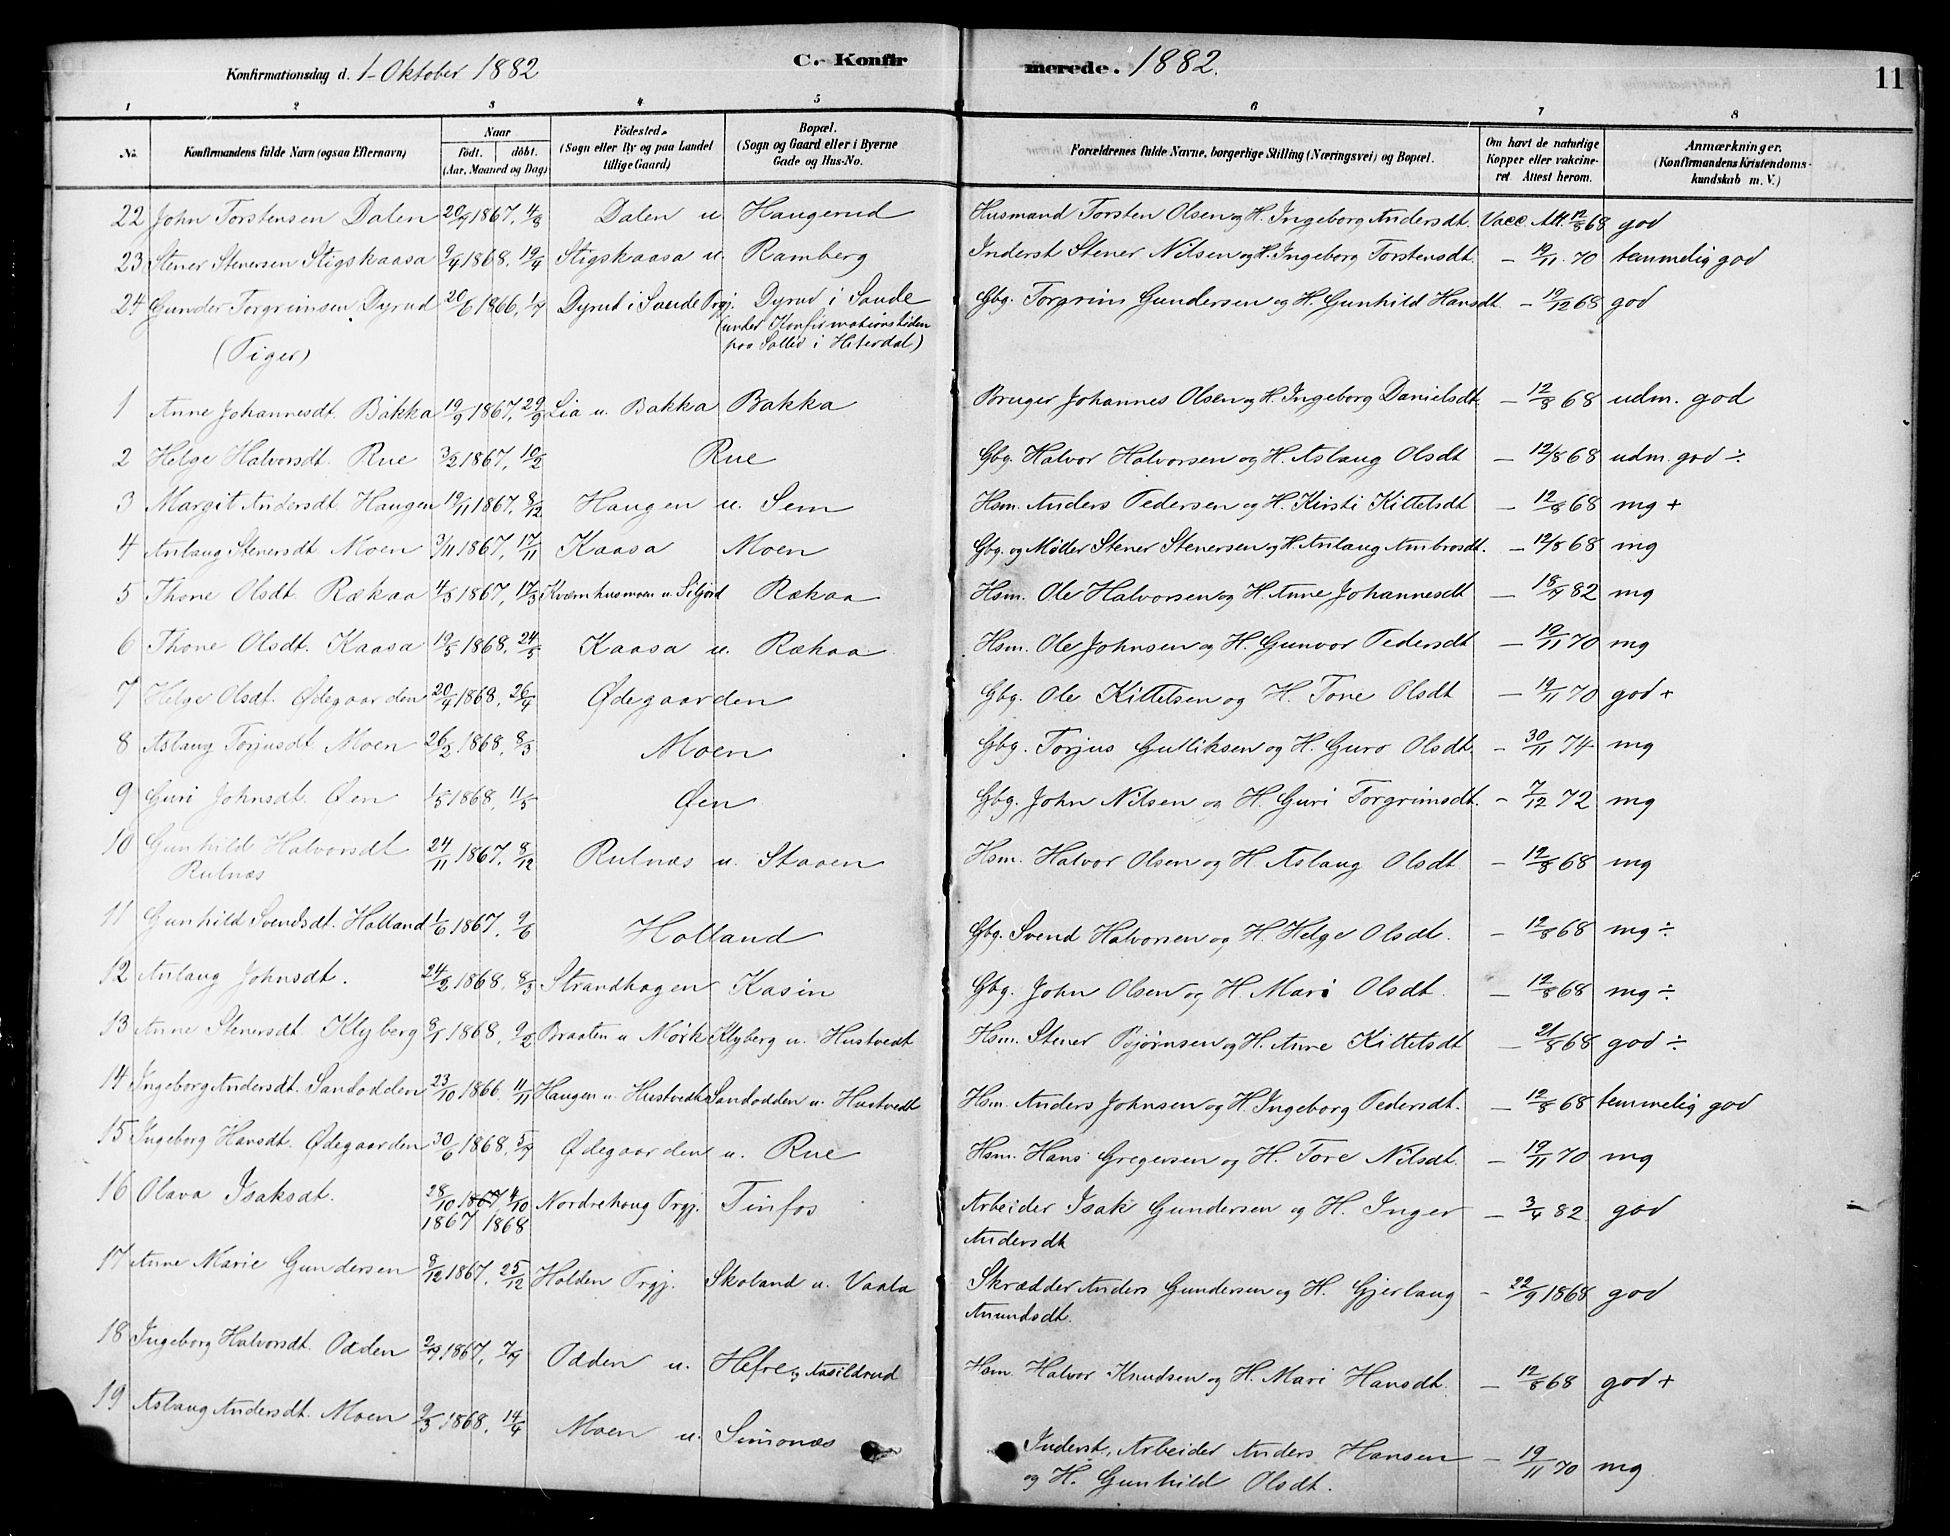 Konfirmationsdag d. 1 Oktober 1882 C. Konfirmerede. 1882. 11
1 2 3 4 5 6 7 8
No. Konfirmandens fulde Navn (ogsaa Efternavn) Naar født. døbt. (Aar, Maaned og Dag) Födested. (Sogn eller By og paa Landet tillige Gaard) Bopæl. (Sogn og Gaard eller i Byerne Gade og Hus-No. Forældrenes fulde Navne, borgerlige Stilling (Næringsvei) og Bopæl. Om havt de naturlige Kopper eller vakcineret Attest herom. Anmærkninger. (Konfirmandens Kristendomskundskab m. V.)
22 John Torstensen Dalen 20/9 1867, 4/8 Dalen u. Haugerud Husmand Torsten Olsen og H. Ingeborg Andersdt. Vacc. Att. 12/8 68 god
23 Stener Stenersen Stigskaasa 9/4 1868, 19/4 Stigskaasa u. Ramberg Inderst Stener Nilsen og H. Ingeborg Torstensdt. - 19/11 70 temmelig god
24 Gunder Torgrimsen Dyrud 20/6 1866, 1/7 Dyrud i Saude Prgj. Dyrud i Saude Gbg. Torgrim Gundersen og H. Gunhild Hansdt. - 19/12 68 god
(Tiger) (under Konfirmationstiden paa Sollid i Hiterdal)
1 Anne Johannesdt. Bakka 19/9 1867, 29/9 Lia u. Bakka Bakka Bruger Johannes Olsen og H. Ingeborg Danielsdt. - 12/8 68 udm. god
2 Helge Halvorsdt. Rue 3/2 1867, 10/2 Rue Gbg. Halvor Halvorsen og H. Aslaug Olsdt - 12/8 68 udm. god ÷
3 Margit Andersdt. Haugen 19/11 1867, 8/12 Haugen u. Sem Hsm. Anders Pedersen og H. Kirsti Kittelsdt - 12/8 68 mg +
4 Anlaug Stenersdt. Moen 3/11 1867, 17/11 Kaasa Moen Gbg. og Møller Stener Stenersen og H. Anlaug Ambrosdt. - 12/8 68 mg
5 Thone Olsdt. Rækaa 4/3 1867, 17/3 Kværnhusmoen u. Siljord Rækaa Hsm. Ole Halvorsen og H. Anne Johannesdt - 18/9 82 mg
6 Thone Olsdt. Kaasa 19/5 1868, 24/5 Kaasa u. Rækaa Hsm. Ole Johnsen og H. Gunvor Pedersdt - 19/11 70 mg
7 Helge Olsdt. Ødegaarden 20/4 1868, 26/4 Ødegaarden Gbg. Ole Kittelsen og H. Tone Olsdt - 19/11 70 god +
8 Aslaug Torjusdt. Moen 26/2 1868, 8/3 Moen Gbg. Torjus Gulliksen og H. Guro Olsdt. - 30/11 74 mg
9 Guri Johnsdt. Øen 1/5 1868, 11/5 Øen Gbg. John Nilsen og H. Guri Torgrimsdt. - 7/12 72 mg
10 Gunhild Halvorsdt Rulnæs 24/11 1867, 8/12 Rulnæs u. Staaen Hsm. Halvor Olsen og H. Aslaug Olsdt - 12/8 68 mg
11 Gunhild Svendsdt. Holland 1/6 1867, 9/6 Holland Gbg. Svend Halvorsen og H. Helge Olsdt. - 12/8 68 mg ÷
12 Anlaug Johnsdt. 24/2 1868, 8/3 Strandhagen Kasin Gbg. John Olsen og H. Mari Olsdt. - 12/8 68 mg ÷
13 Anne Stenersdt. Klyberg 8/1 1868, 9/2 Braaten u Mørk Klyberg u. Hustvedt Hsm. Stener Bjørnsen og H. Anne Kittelsdt - 21/8 68 god ÷
14 Ingeborg Andersdt. Sandodden 23/10 1866, 11/11 Haugen u. Hustvedt Sandodden u. Hustvedt Hsm. Anders Johnsen og H. Ingeborg Pedersdt. - 12/8 68 temmelig god
15 Ingeborg Hansdt. Ødegaarden 30/6 1868, 5/7 Ødegaarden u. Rue Hsm. Hans Gregersen og H. Tore Nilsdt. - 19/11 70 mg
16 Olava Isaksdt. 28/10 1867, 4/10 Nordrehoug Prgj. Tinfos Arbeider Isak Gundersen og H. Inger - 3/4 82 god
1867 1868 Andersdt
17 Anne Marie Gundersen 8/12 1867, 25/12 Holden Prgj. Skoland u. Vaala Skrædder Anders Gundersen og H. Gjerlaug - 22/9 1868 god
Amundsdt.
18 Ingeborg Halvorsdt. Odden 2/7 1867, 7/7 Odden u. Hefre og Aasildrud Hsm. Halvor Knudsen og H. Mari Hansdt. - 12/8 68 god +
19 Aslaug Andersdt. Moen 9/3 1868, 14/4 Moen u. Semonæs Inderst, Arbeider Anders Hansen - 19/11 70 mg
og H. Gunhild Olsdt.